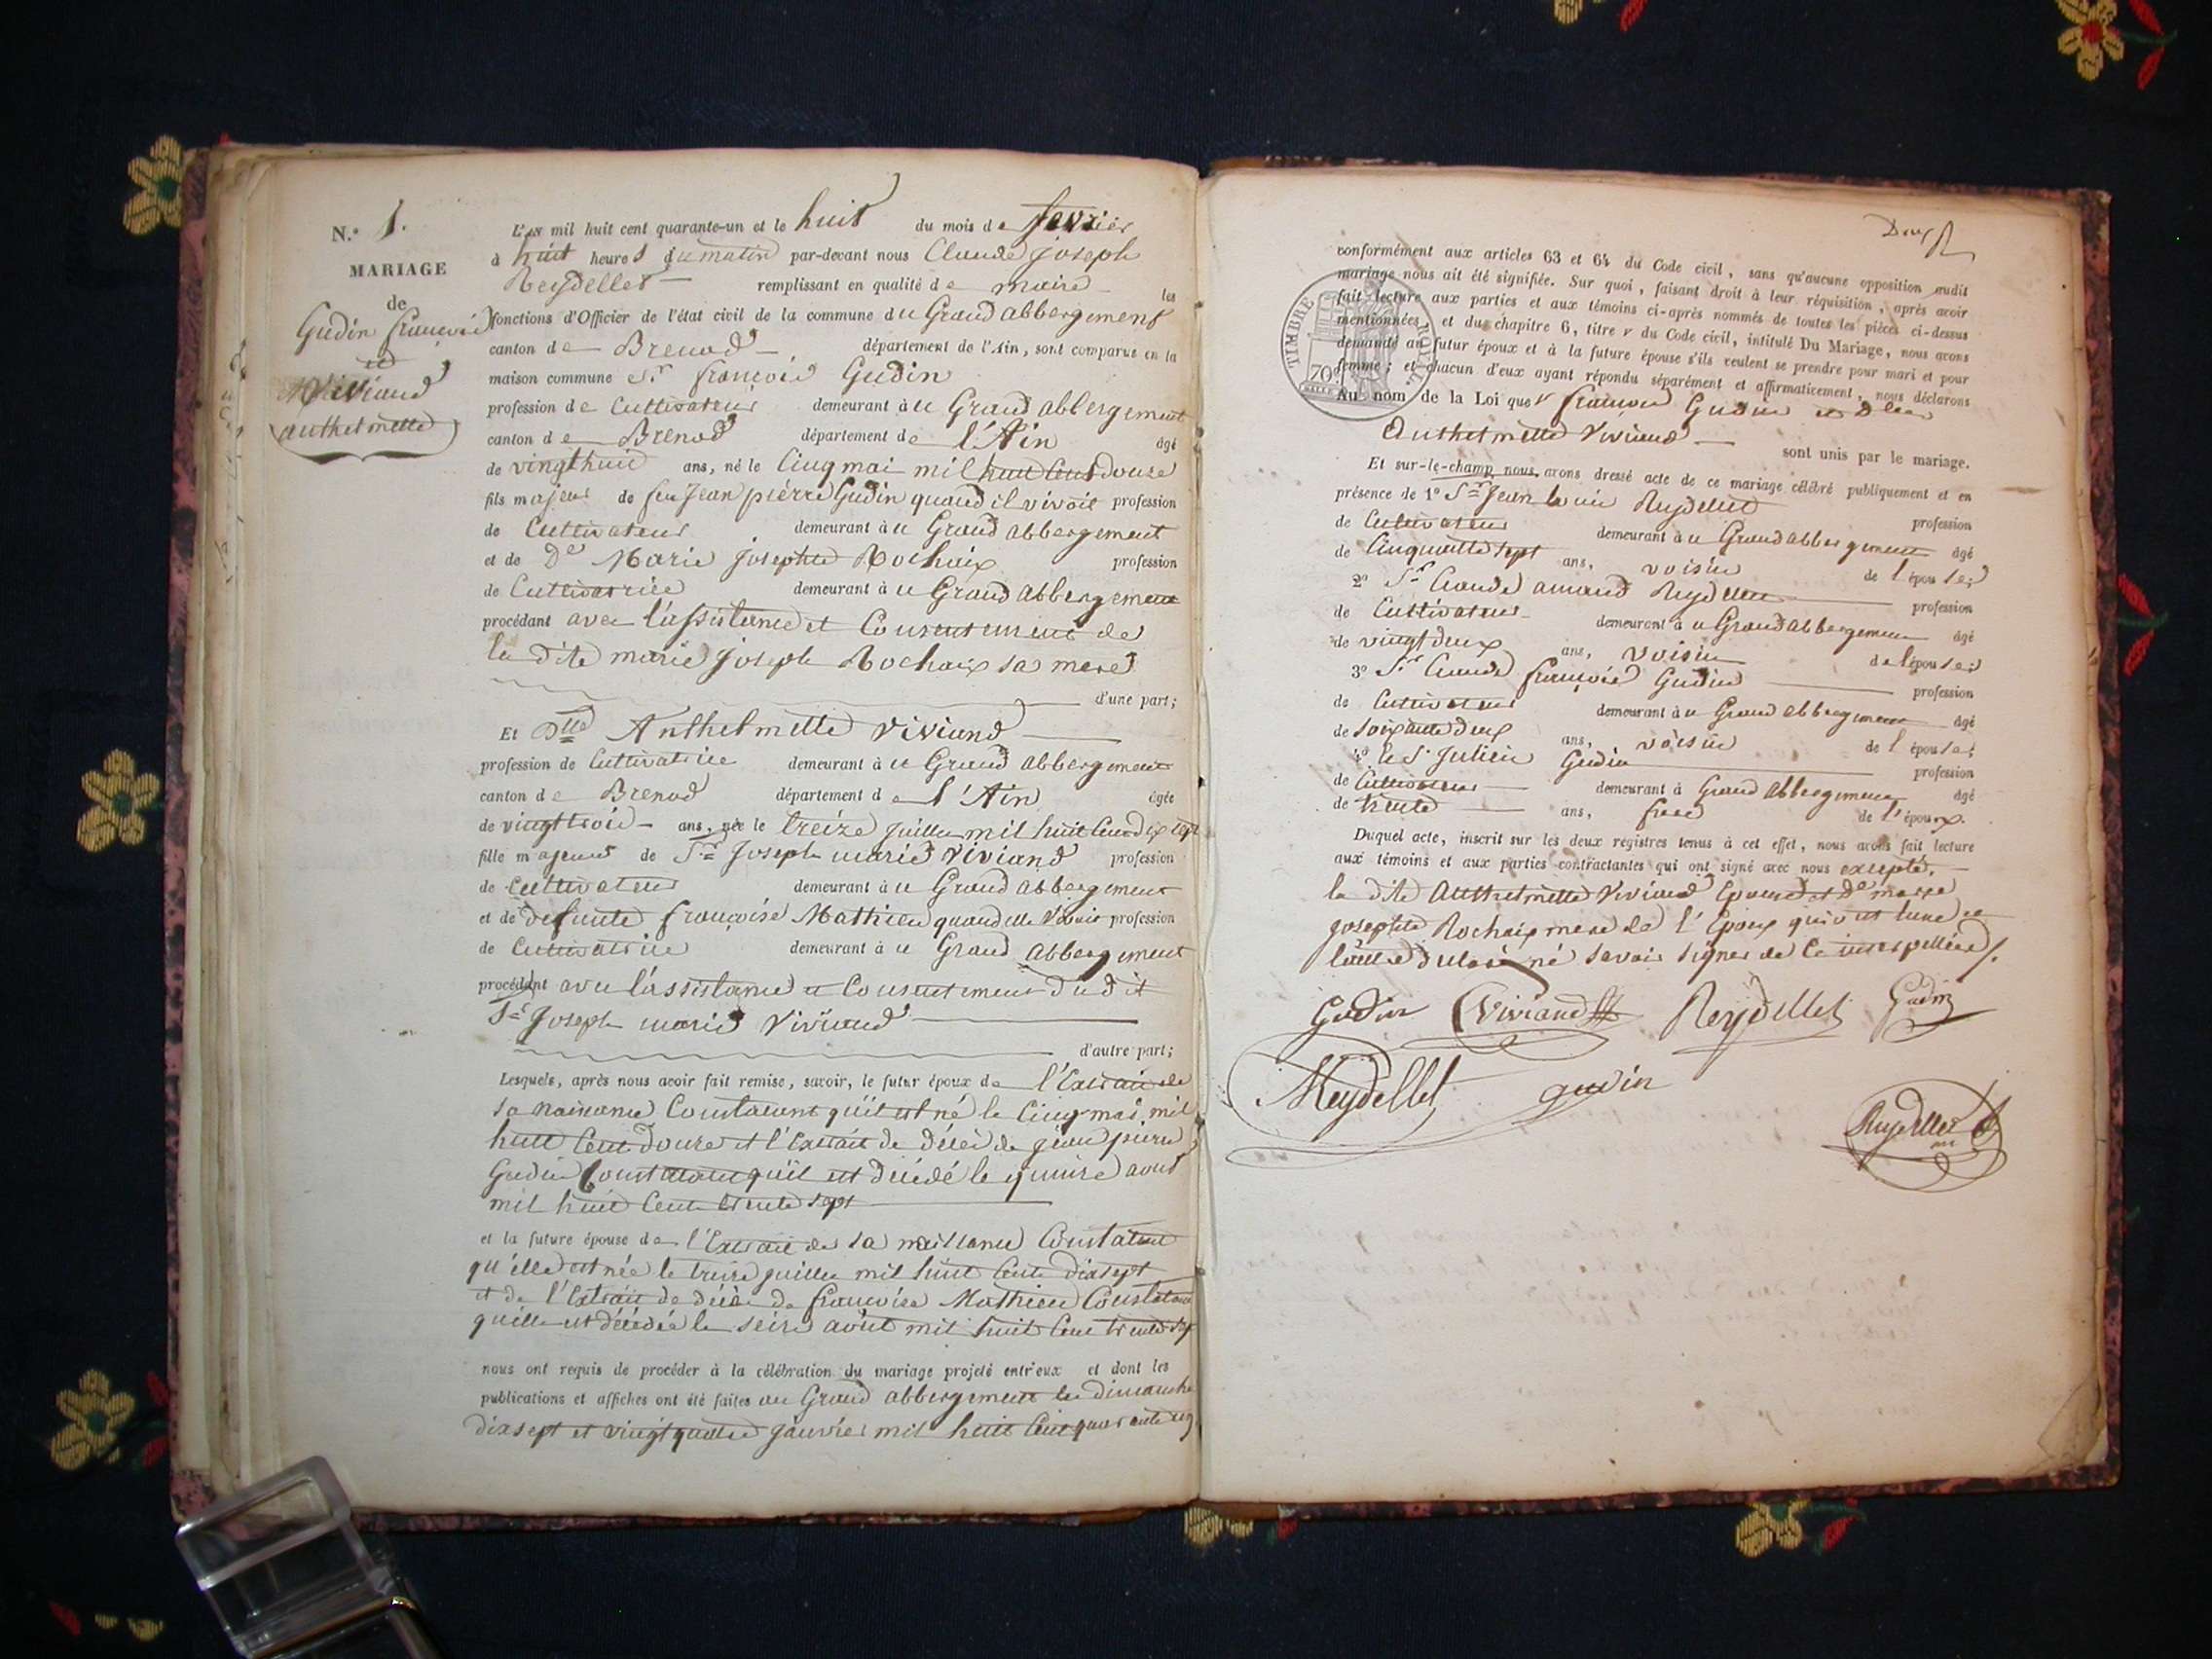 N.° 1.
MARIAGE
de
Gudin françois
et
Viviand
anthelmette
L'an mil huit cent quarante-un et le huit du mois de fevrier
à huit heures du matin par-devant nous Claude joseph
Reydellet remplissant en qualité de maire les
fonctions d'Officier de l'état civil de la commune du Grand abbergement
canton de Brenod département de l'Ain, sont comparus en la
maison commune Sr françois Gudin
profession de Cultivateur demeurant à u Grand abbergement
canton de Brenod département de l'Ain âgé
de vingt huit ans, né le Cinq mai mil huit Cent douze
fils majeur de feu Jean pierre Gudin quand il vivoit profession
de Cultivateur demeurant à u Grand abbergement
et de De Marie josephte Rochaix profession
de Cultivatrice demeurant à u Grand abbergement
procédant avec l'assistance et Consentement de
la dite marie joseph Rochaix sa mere
d'une part;
Et Dlle Anthelmette Viviand
profession de Cultivatrice demeurant à u Grand abbergement
canton de Brenod département de l'Ain âgée
de vingt trois ans, née le treize juillet mil huit Cent dix sept
fille majeure de Sr Joseph marie Viviand profession
de Cultivateur demeurant à u Grand abbergement
et de defunte françoise Mathieu quand elle vivoit profession
de Cultivatrice demeurant à u Grand abbergement
procédant avec l'assistance et Consentement du dit
Sr Joseph marie Viviand
d'autre part;
Lesquels, après nous avoir fait remise, savoir, le futur époux de l'Extrait de
sa naissance Constatant qu'il est né le Cinq mai mil
huit Cent douze et l'Extrait de décè de jean pierre
Gudin Constatant qu'il est décédé le quinze aout
mil huit Cent trente sept
et la future épouse de l'Extrait de sa naissance Constatant
qu'elle est née le treize juillet mil huit Cent dix sept
et de l'Extrait de décè de françoise Mathieu Constatant
qu'elle est décédée le seize août mil huit Cent trente sept
nous ont requis de procéder à la célébration du mariage projeté entr'eux et dont les
publications et affiches ont été faites au Grand abbergement les dimanche
dix sept et vingt quatre janvier mil huit Cent quarante un
conformément aux articles 63 et 64 du Code civil, sans qu'aucune opposition audit
mariage nous ait été signifiée. Sur quoi, faisant droit à leur réquisition, après avoir
fait lecture aux parties et aux témoins ci-après nommés de toutes les pièces ci-dessus
mentionnées, et du chapitre 6, titre v du Code civil, intitulé Du Mariage, nous avons
demandé au futur époux et à la future épouse s'ils veulent se prendre pour mari et pour
femme; et chacun d'eux ayant répondu séparément et affirmativement, nous déclarons
Au nom de la Loi que françois Gudin et Dlle
Anthelmette Viviand
sont unis par le mariage.
TIMBRE ROYAL
70c
Et sur-le-champ nous avons dressé acte de ce mariage célébré publiquement et en
présence de 1° Sr Jean louis Reydellet profession
de Cultivateur demeurant à u Grand abbergement âgé
de Cinquante sept ans, voisin de l'épouse
2° Sr Claude amand Reydellet profession
de Cultivateur demeurant à u Grand abbergement âgé
de vingt deux ans, voisin de l'épouse
3° Sr Claude françois Gudin profession
de Cultivateur demeurant à u Grand abbergement âgé
de soixante deux ans, voisin de l'épouse
4° le Sr Julien Gudin profession
de Cultivateur demeurant à Grand abbergement âgé
de trente ans, frere de l'époux.
Duquel acte, inscrit sur les deux régistres tenus à cet effet, nous avons fait lecture
aux témoins et aux parties contractantes qui ont signé avec nous excepté
la dite Anthelmette Viviand Epouse et De marie
josephte Rochaix mere de l'Epoux qui ont l'une et
l'autre déclaré né savoir signer de Ce interpellées.
Gudin Viviand Reydellet Gudin
Reydellet gudin
Reydellet